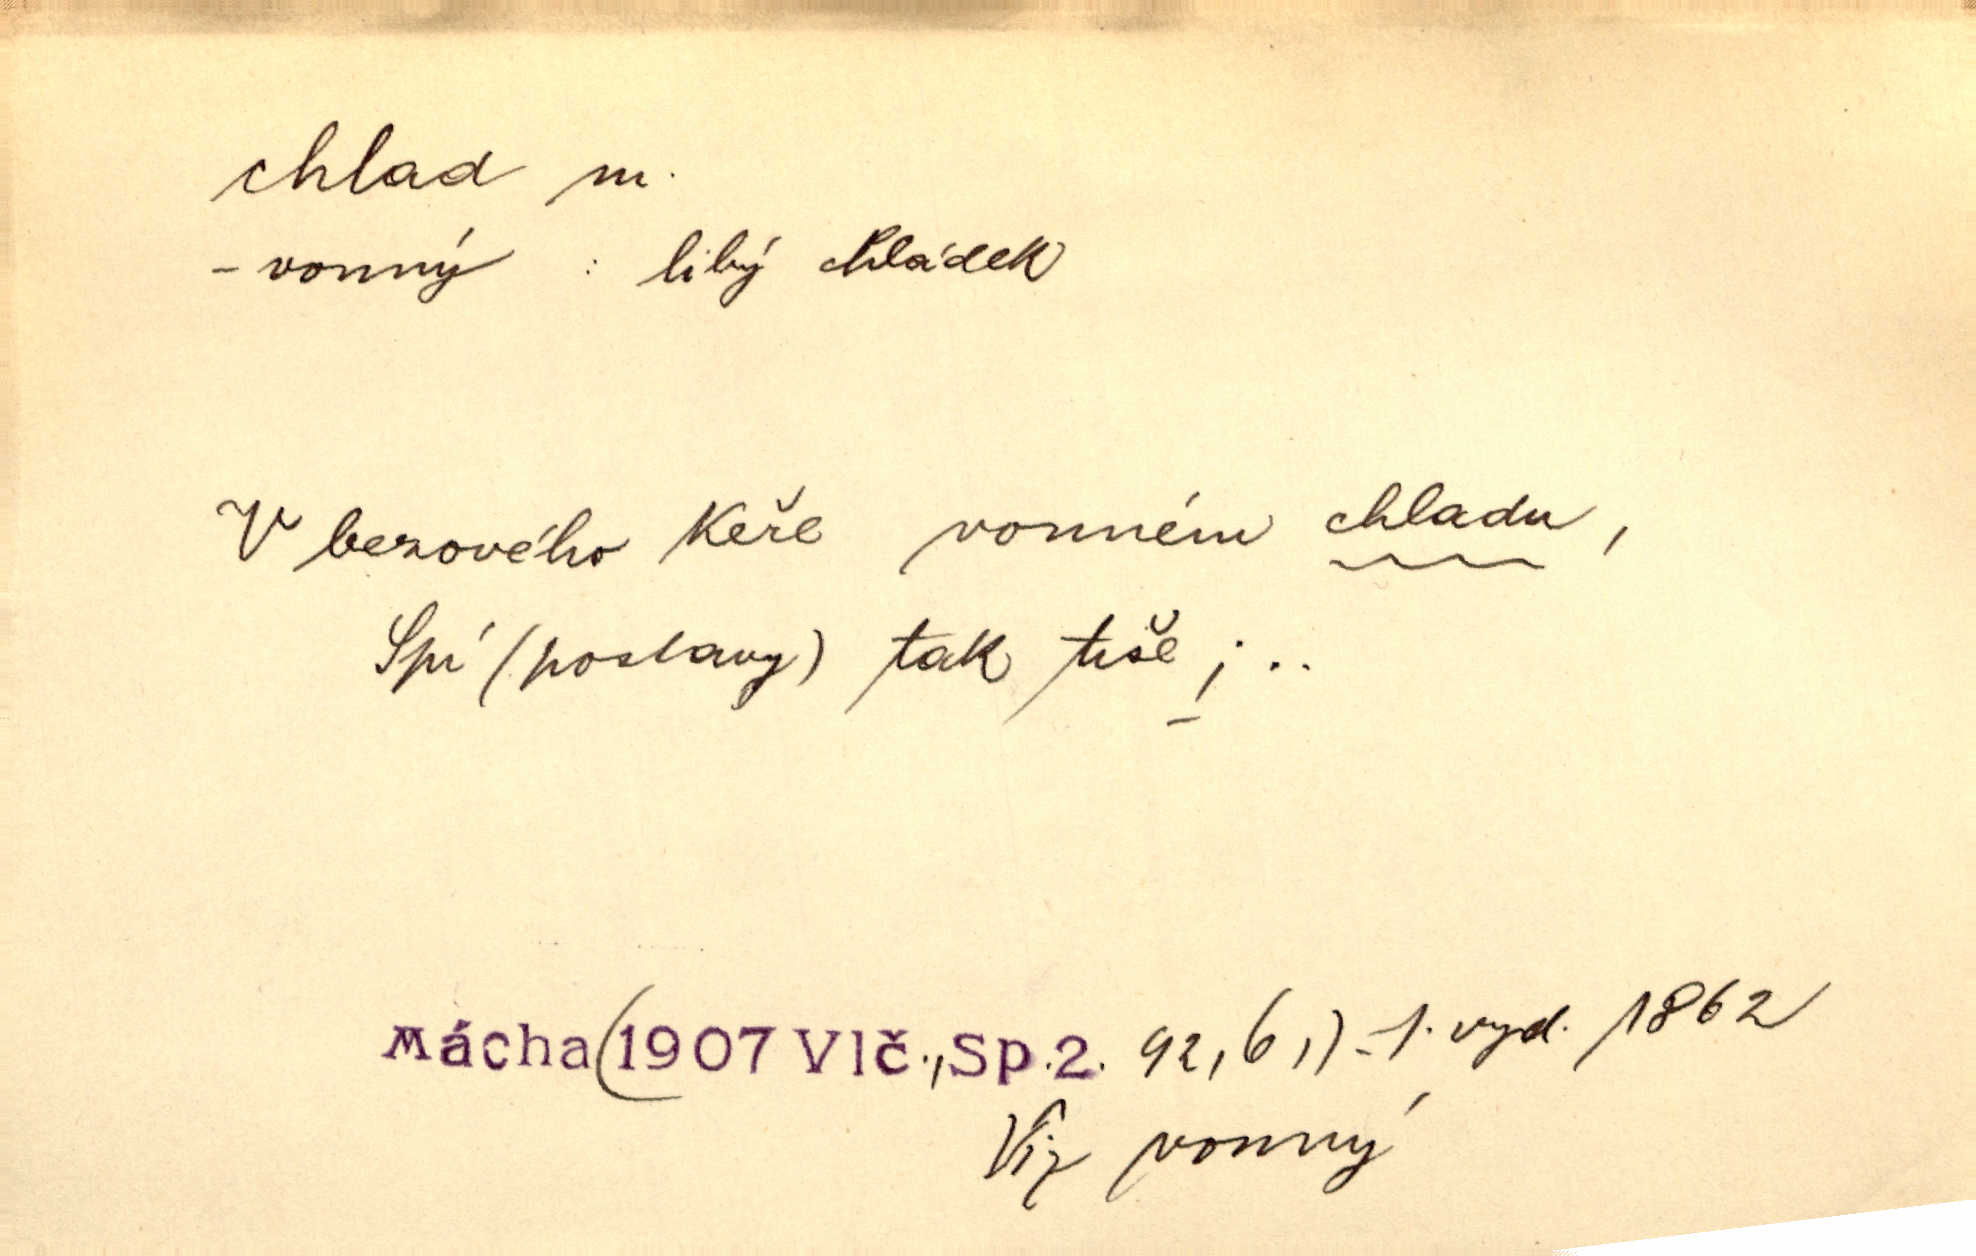 chlad m.
- vonný : libý chládek
V bezového keře vonném chladu,
Spí (postavy) tak tiše; ..
Mácha (1907 Vlč., Sp.2. 92,6,) - 1. vyd. 1862
Viz vonný